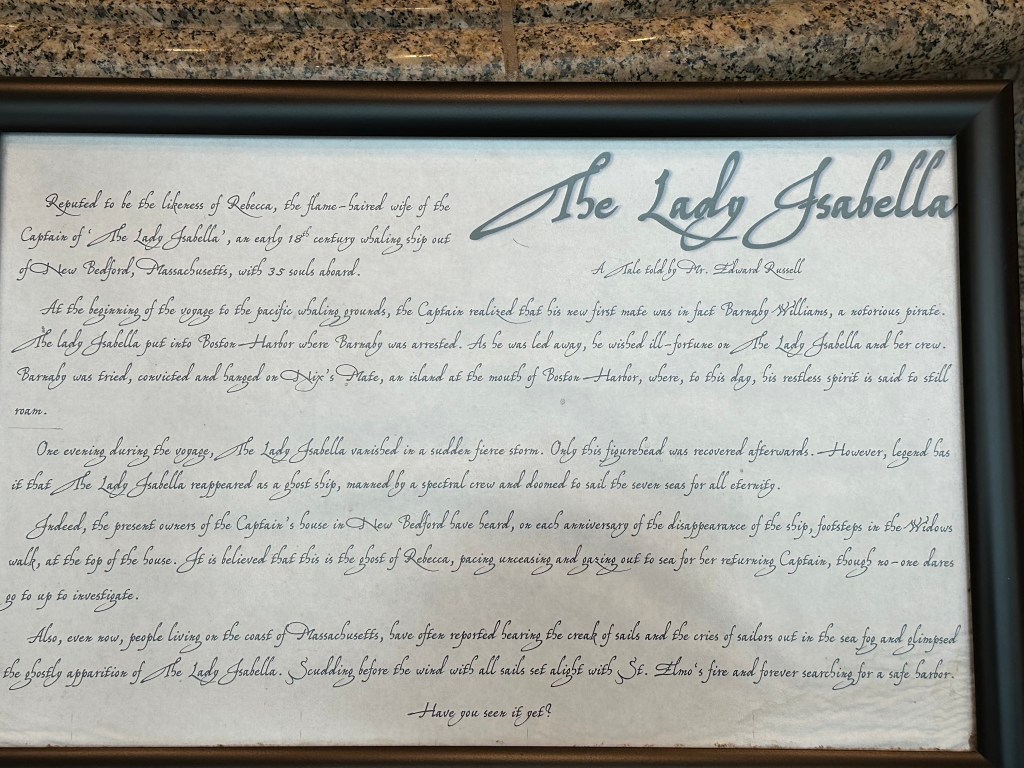 The Lady Isabella
A Tale told by Mr. Edward Russell
Reputed to be the likeness of Rebecca, the flame-haired wife of the
Captain of 'The Lady Isabella', an early 18th century whaling ship out
of New Bedford, Massachusetts, with 35 souls aboard.
At the beginning of the voyage to the pacific whaling grounds, the Captain realized that his new first mate was in fact Barnaby Williams, a notorious pirate.
The lady Isabella put into Boston Harbor where Barnaby was arrested. As he was led away, he wished ill-fortune on The Lady Isabella and her crew.
Barnaby was tried, convicted and hanged on Nix's Mate, an island at the mouth of Boston Harbor, where, to this day, his restless spirit is said to still
roam.
One evening during the voyage, The Lady Isabella vanished in a sudden fierce storm. Only this figurehead was recovered afterwards. However, legend has
it that The Lady Isabella reappeared as a ghost ship, manned by a spectral crew and doomed to sail the seven seas for all eternity.
Indeed, the present owners of the Captain's house in New Bedford have heard, on each anniversary of the disappearance of the ship, footsteps in the Widows
walk, at the top of the house. It is believed that this is the ghost of Rebecca, pacing unceasing and gazing out to sea for her returning Captain, though no-one dares
go to up to investigate.
Also, even now, people living on the coast of Massachusetts, have often reported hearing the creak of sails and the cries of sailors out in the sea fog and glimpsed
the ghostly apparition of The Lady Isabella. Scudding before the wind with all sails set alight with St. Elmo's fire and forever searching for a safe harbor.
Have you seen it yet?